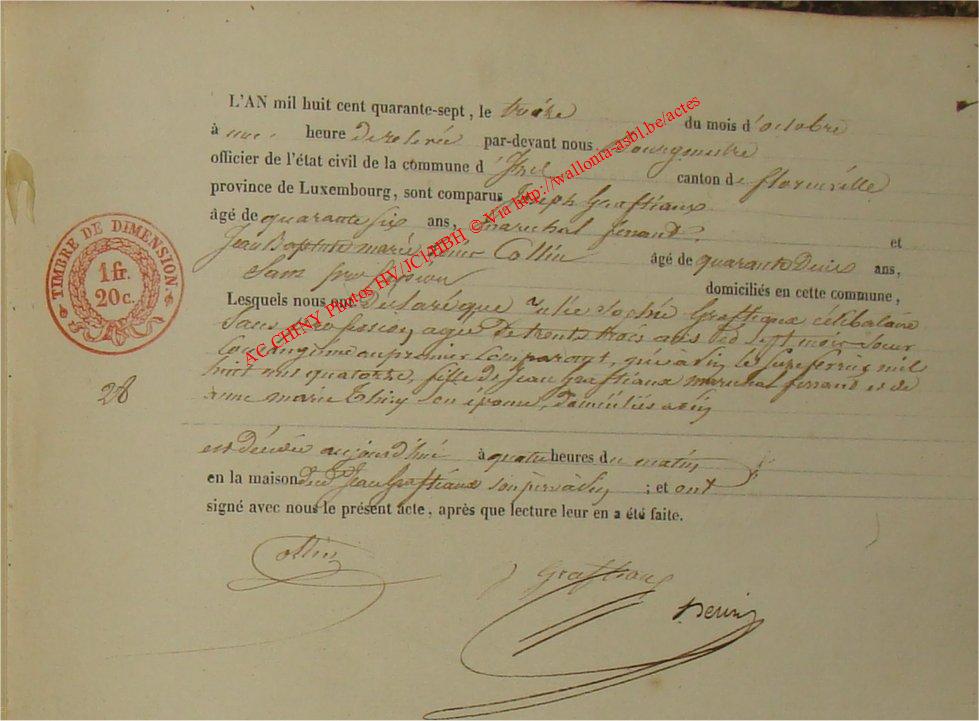 L'AN mil huit cent quarante-sept, le treize du mois d'octobre
à une heure de relevée par-devant nous Bourgmestre
officier de l'état civil de la commune d'Izel canton de florenville
province de Luxembourg, sont comparus Joseph Graftiaux
âgé de quarante six ans, marechal ferrant et
Jean Baptiste marie Collin âgé de quarante Deux ans,
Sans profession domiciliés en cette commune,
Lesquels nous ont déclaré que Julie Sophie Graftiaux célibataire
Sans profession, agée de trente trois ans sept mois Soeur
Consanguine au premier Comparant, née le Seize ferrier mil
huit cens quatorze, fille de Jean Graftiaux marechal ferrand et de
anne marie Thiry son épouse, domiciliés
est décédée aujourd'hui à quatre heures du matin
en la maison dud Jean Graftiaux son père ; et ont
signé avec nous le présent acte, après que lecture leur en a été faite.
Collin
Graftiaux
TIMBRE DE DIMENSION
1 fr.
20 c.
28
AC CHINY Photos HV/JCl/HBH © Via http://wallonia-asbl.be/actes